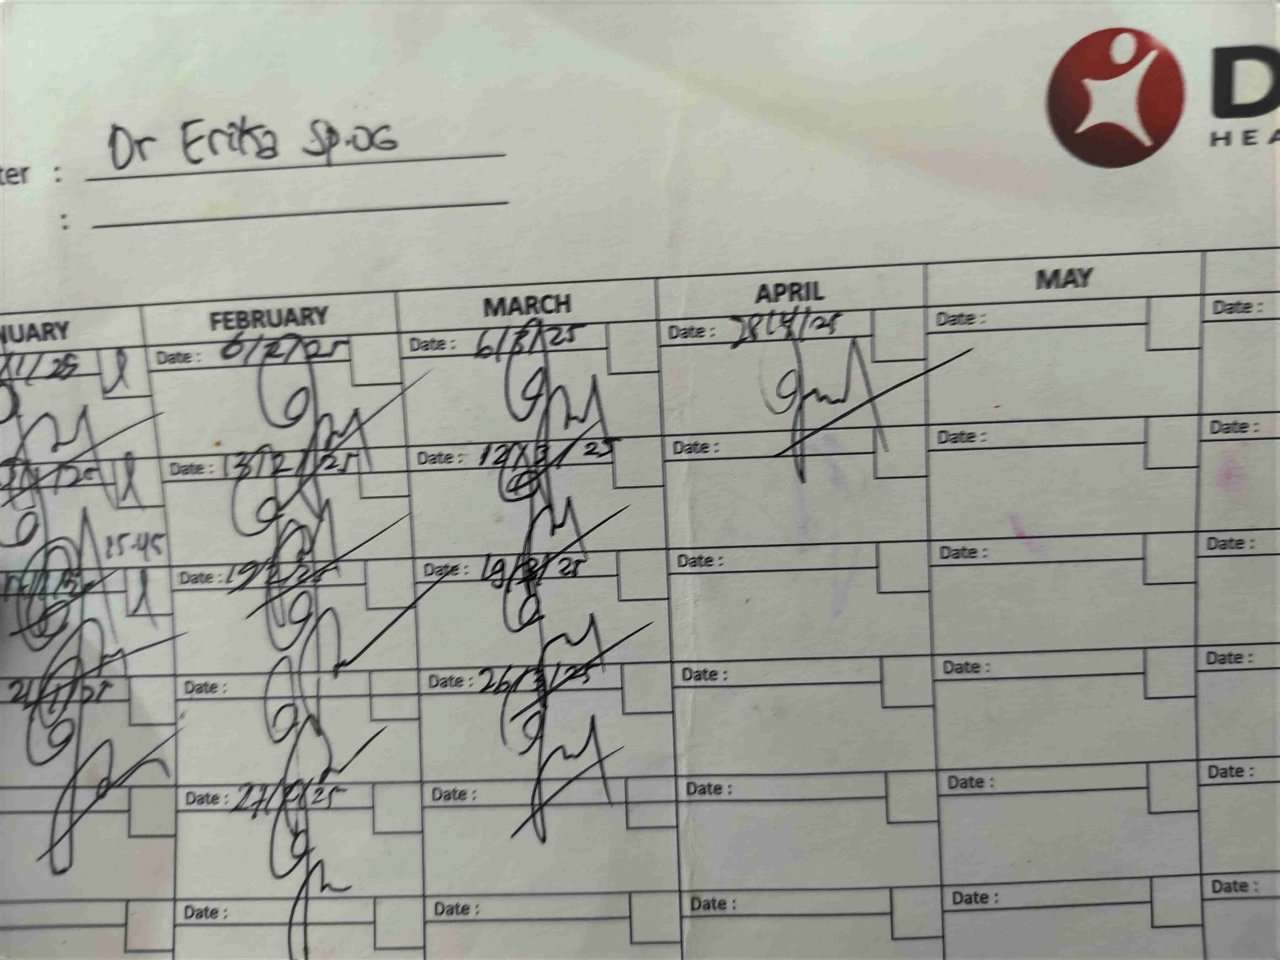 Dr Erika Sp.OG
ter :
:
D
HEA
NUARY FEBRUARY MARCH APRIL MAY
1/25 Date : 6/2/25 Date : 6/3/25 Date : 28/4/25 Date : Date :
Date : 13/2/25 Date : 12/3/25 Date : Date : Date :
15.45
Date : 19/2/25 Date : 19/3/25 Date : Date : Date :
21/1/25 Date : Date : 26/3/25 Date : Date : Date :
Date : 27/2/25 Date : Date : Date : Date :
Date : Date : Date : Date : Date :